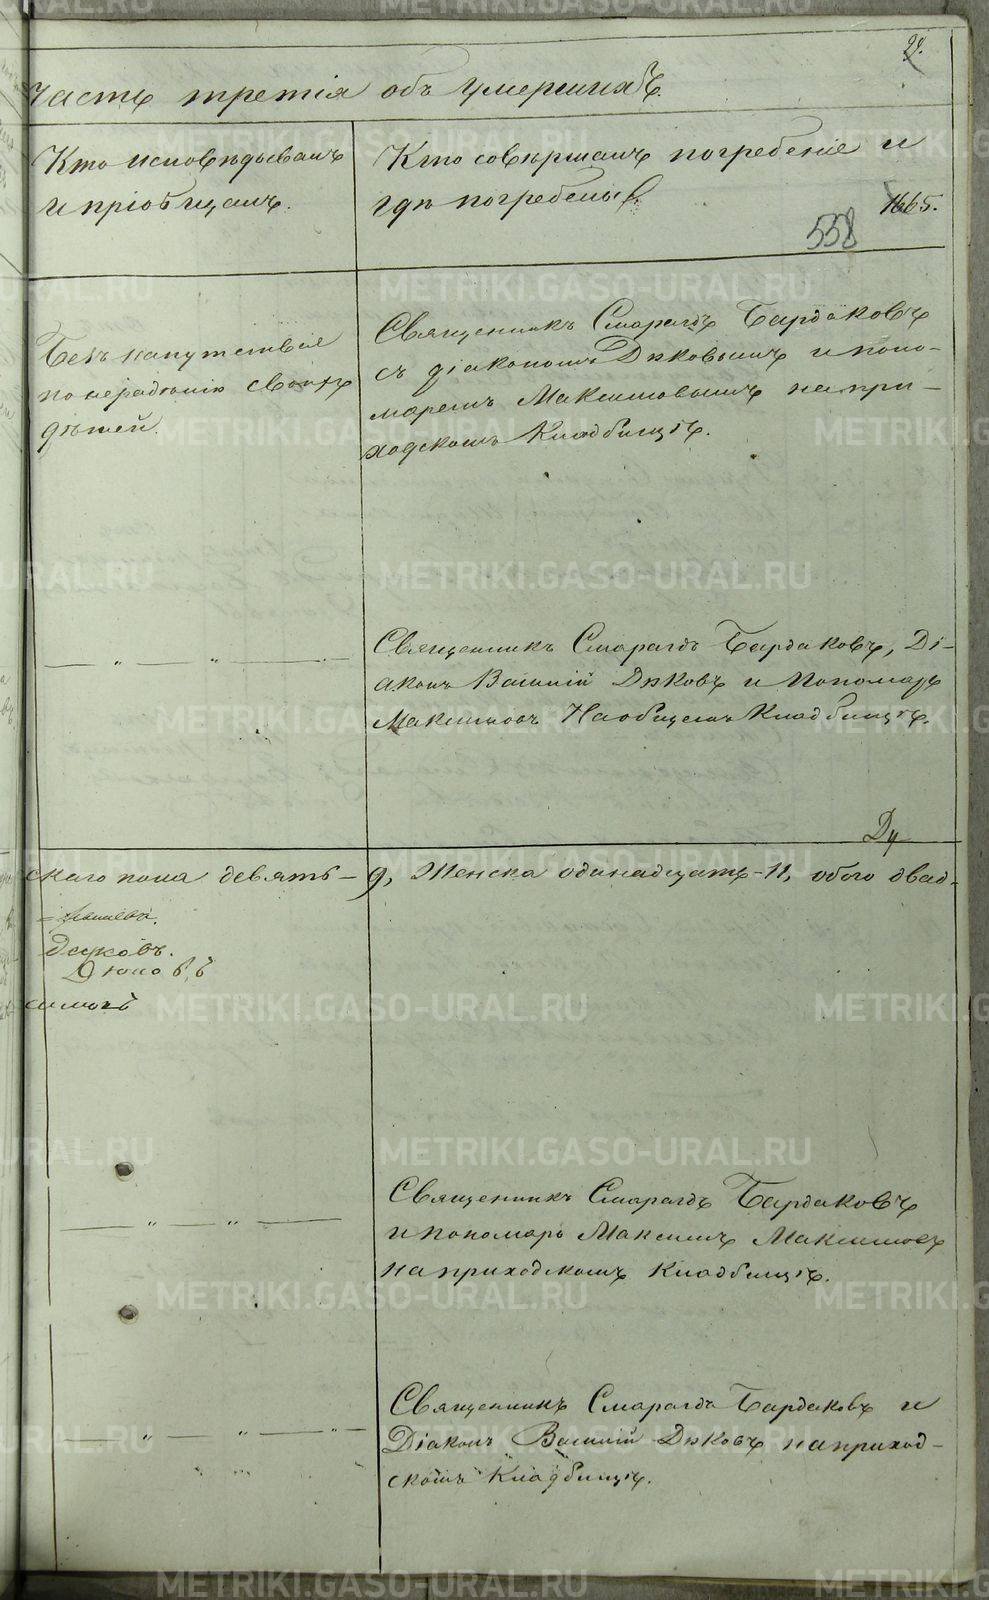 Часть третія объ умершихъ.
Кто исповѣдывалъ
и пріобщалъ.
Кто совѣршалъ погребеніе и
гдѣ погребены.
1665.
558
Безъ напутствія
по нерадѣнію своихъ
дѣтей.
Священникъ Смарагдъ Бардаковъ
съ діакономъ Дюковымъ и поно-
маремъ Максимовымъ на при-
ходскомъ Кладбищѣ.
— „ — „ —
Священникъ Смарагдъ Бардаковъ, Ді-
аконъ Василій Дюковъ и Пономарь
Максимовъ На общемъ Кладбищѣ.
скаго пола девять – 9, Женска одинадцать – 11, обоего двад-
Дюковъ.
— „ — „ —
Священникъ Смарагдъ Бардаковъ
и пономарь Максимъ Максимовъ
на приходскомъ Кладбищѣ.
— „ — „ — „ —
Священникъ Смарагдъ Бардаковъ и
Діаконъ Василій Дюковъ на приход-
скомъ Кладбищѣ.
METRIKI.GASO-URAL.RU